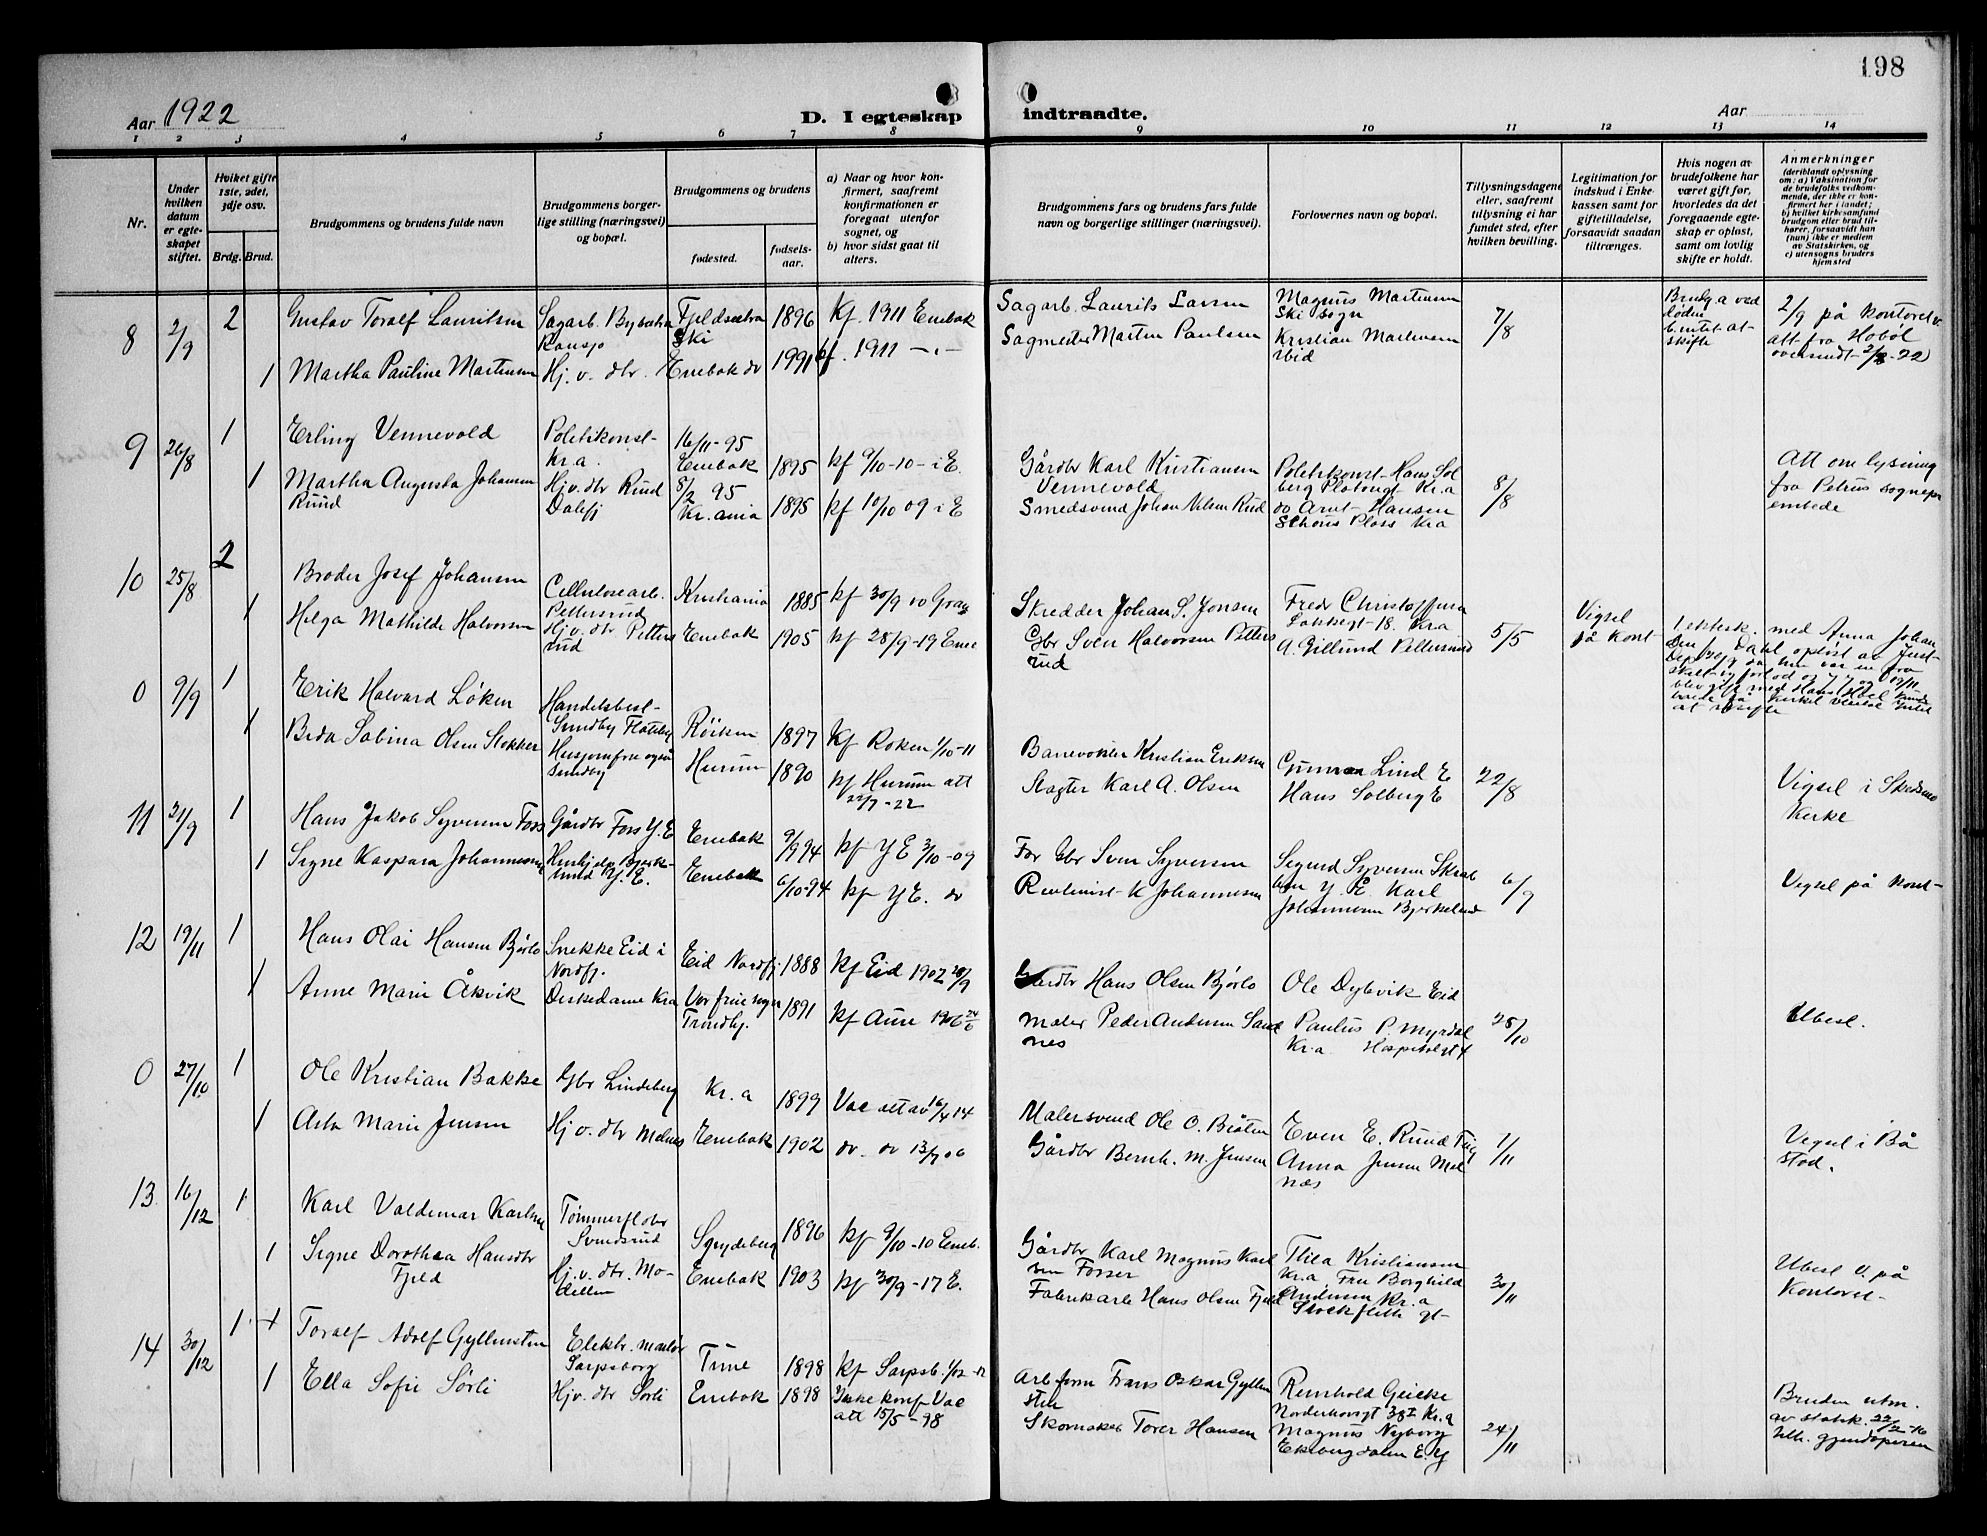 198
Aar 1922
D. I egteskap
indtraadte.
Aar
1 2 3 4 5 6 7 8 9 10 11 12 13 14
Nr.
Under hvilken datum er egteskapet stiftet.
Hvilket gifte 1ste, 2det, 3dje osv.
Brdg. Brud.
Brudgommens og brudens fulde navn
Brudgommens borgerlige stilling (næringsvei) og bopæl.
Brudgommens og brudens
fødested.
fødselsaar.
a) Naar og hvor konfirmert, saafremt konfirmationen er foregaat utenfor sognet, og
b) hvor sidst gaat til alters.
Brudgommens fars og brudens fars fulde navn og borgerlige stillinger (næringsvei).
Forlovernes navn og bopæl.
Tillysningsdagene eller, saafremt tillysning ei har fundet sted, efter hvilken bevilling.
Legitimation for indskud i Enkekassen samt for giftetilladelse, forsaavidt saadan tiltrænges.
Hvis nogen av brudefolkene har været gift før, hvorledes da det foregaaende egteskap er opløst, samt om lovlig skifte er holdt.
Anmerkninger (deriblandt oplysning om: a) Vaksination for de brudefolks vedkommende, der ikke er konfirmert her i landet; b) hvilket kirkesamfund brudgom eller brud tilhører, forsaavidt han (hun) ikke er medlem av Statskirken, og c) utensogns bruders hjemsted
8 2/9 2 Gustav Toralf Lauritsen Sagarb. Fjeldsætra Ski 1896 Kf. 1911 Enebak
Sagarb. Laurits Larsen Magnus Martinsen Ski sogn 7/8
2/9 på kontoret
att fra Hobøl
1 Martha Pauline Martinsen Hj. v. dtr. Enebak 1991 kf. 1911 -"-
Sagmester Martin Paulsen Kristian Martinsen ibid
9 26/8 1 Erling Vennevold Politikonst. Kr.a. 16/11-95 Enebak 1895 kf 9/10-10- i E.
Gårdbr Karl Kristiansen Vennevold 8/8
Att om lysning
fra Petrus sognepr
embede
1 Martha Augusta Johansen Ruud Hj. v. dtr Ruud 8/2 95 Kr.ania 1895 kf 10/10 09 i E
Smedsvend Johan Nilsen Rud do Arnt Hansen Schous Plass Kra
10 25/8 2 Broder Josef Johansen Cellulosearb. Pettersrud Kristiania 1885 kf 30/9 00
Skredder Johan S. Jonsen Fredr 18. Kra 5/5 Vigsel på kont-
1 Helga Mathilde Halvorsen Hj. v. dtr Pettersrud Enebak 1905 kf 28/9-19 Eneb
Gbr Sven Halvorsen Pettersrud A. Gillund Pettersrud
1 ektesk. med Anna Johan
0 9/9 1 Erik Halvard Løken Handelsbest. Sundby Flateby Röiken 1897 Kf Röken 1/10-11
Banevokter Kristian Eriksen Gunnar Lind E 22/8
Vigsel i Skedsmo
Kirke
1 Sabina Olsen Stokker Husjomfru også Sundby Hurum 1890 kf Hurum att 22/7-22
Slagter Karl A. Olsen Hans Solberg E
11 21/9 1 Hans Jakob Syversen Foss Gårdbr Foss Y. E Enebak 9/9 94 kf Y E 3/10-09
Gbr Sven Syversen Sigurd Syversen 6/9
Vigsel på kont-
1 Signe Kaspara Johannesen Hushjelp Bjerkelund Y. E. Enebak 6/10-94 kf Y E. do
K Johannesen Karl Johannesen Bjerkelund
12 19/11 1 Hans Olai Hansen Bjørlo Snekke Eid i Nordfj. Eid Nordfj. 1888 kf Eid 1902 28/9
Gårdbr Hans Olsen Bjørlo Ole Dybvik Eid 25/10
Ubesl.
1 Anne Marie Åkvik Diskedame Kra Vor frue sogn Trondhj. 1891 kf Aure 1906
Maler Peder Andersen Sandnes Paulus P. Myrdal Kr.a Hospitalsgt 4
0 27/10 1 Ole Kristian Bakke Gbr Lindeberg Kr. a 1899 Vac att av 16/4 14
Malersvend Ole O. Even E. Ruud 1/11
Vigsel i Bå
stad.
1 Asta Marie Jensen Hj v. dtr Melnes Enebak 1902 do. do 13/7 06
Gårdbr Bernh. M. Jensen Anna Jensen Melnæs
13 16/12 1 Karl Valdemar Karlsen Tømmerfløter Svendsrud Spydeberg 1896 kf 9/10-10 Eneb.
Gårdbr Karl Magnus Karlsen Thea Kristiansen Kr.a 30/11
Ubesl V. på
Kontoret-
1 Signe Dorothea Hansdtr Fjeld Hj. v. dtr. Enebak 1903 kf 30/9-17 E.
Fabrikarb Hans Olsen Fjeld Fru Borghild Andersen Kr.a Stockfleth gt-
14 30/12 1 Toralf Adolf Gyllensten Elektr. montør Sarpsborg Tune 1898 kf Sarpsb. 1/12-12
Arb form Frans Oskar Gyllensten Reinhold Geicke Norderhovsgt Kr.a 24/11
Bruden utm.
av statsk. 22/2-16
tilh. gjendøperen
1 Ella Sofie Sørli Hj v. dtr Sørli Enebak 1898 Ikke konf Vac att 15/5-98
Skomaker Torer Hansen Magnus Nyborg Ekebergdalen E. Y